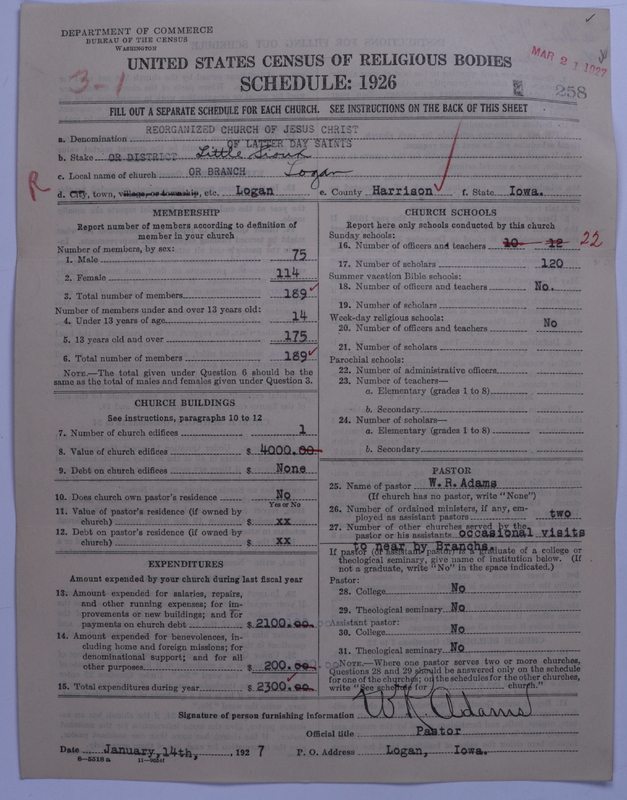 DEPARTMENT OF COMMERCE
BUREAU OF THE CENSUS
WASHINGTON
UNITED STATES CENSUS OF RELIGIOUS BODIES
SCHEDULE: 1926
MAR 21 1927
3-1
258
FILL OUT A SEPARATE SCHEDULE FOR EACH CHURCH. SEE INSTRUCTIONS ON THE BACK OF THIS SHEET
a. Denomination REORGANIZED CHURCH OF JESUS CHRIST
OF LATTER DAY SAINTS
b. Stake OR DISTRICT Little Sioux
c. Local name of church OR BRANCH Logan
R
d. City, town, village, or township, etc. Logan e. County Harrison f. State Iowa.
MEMBERSHIP
Report number of members according to definition of
member in your church
Number of members, by sex:
1. Male 75
2. Female 114
3. Total number of members 189
Number of members under and over 13 years old:
4. Under 13 years of age 14
5. 13 years old and over 175
6. Total number of members 189
NOTE.—The total given under Question 6 should be
same as the total of males and females given under Question 3.
CHURCH BUILDINGS
See instructions, paragraphs 10 to 12
7. Number of church edifices 1
8. Value of church edifices $ 4000.00
9. Debt on church edifices $ None
10. Does church own pastor's residence No
Yes or No
11. Value of pastor's residence (if owned by
church) $ xx
12. Debt on pastor's residence (if owned by
church) $ xx
EXPENDITURES
Amount expended by your church during last fiscal year
13. Amount expended for salaries, repairs,
and other running expenses; for im-
provements or new buildings; and for
payments on church debt $ 2100.00
14. Amount expended for benevolences, in-
cluding home and foreign missions; for
denominational support; and for all
other purposes $ 200.00
15. Total expenditures during year $ 2300.00
CHURCH SCHOOLS
Report here only schools conducted by this church
Sunday schools:
16. Number of officers and teachers 10 12 22
17. Number of scholars 120
Summer vacation Bible schools:
18. Number of officers and teachers No.
19. Number of scholars
Week-day religious schools:
20. Number of officers and teachers No
21. Number of scholars
Parochial schools:
22. Number of administrative officers
23. Number of teachers—
a. Elementary (grades 1 to 8)
b. Secondary
24. Number of scholars—
a. Elementary (grades 1 to 8)
b. Secondary
PASTOR
25. Name of pastor W.R.Adams
(If church has no pastor, write "None")
26. Number of ordained ministers, if any, em-
ployed as assistant pastors two
27. Number of other churches served by the
pastor or his assistants occasional visits
to near by Branchs.
If pastor (or assistant pastor) is a graduate of a college or
theological seminary, give name of institution below. (If
not a graduate, write "No" in the space indicated.)
Pastor:
28. College No
29. Theological seminary No
Assistant pastor:
30. College No
31. Theological seminary No
NOTE.—Where one pastor serves two or more churches,
Questions 28 and 29 should be answered only on the schedule
for one of the churches; on the schedules for the other churches,
write "See schedule for church."
Signature of person furnishing information W R Adams
Official title Pastor
Date January, 14th, 1927 P. O. Address Logan, Iowa.